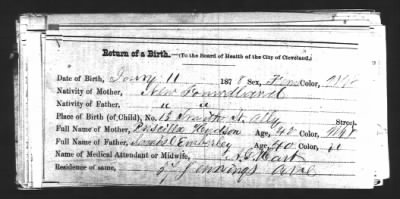 Return of a Birth.—(To the Board of Health of the City of Cleveland.)
Date of Birth, Jany 11 1878 Sex, Fem Color, White
Nativity of Mother, New Foundland
Nativity of Father, " "
Place of Birth (of Child), No. 18 Alley Street.
Full Name of Mother, Priscilla Hudson Age, 40 Color,
Full Name of Father, Emberley Age, 40 "
Name of Medical Attendant or Midwife, Hart
Residence of same, 57 Jennings Ave